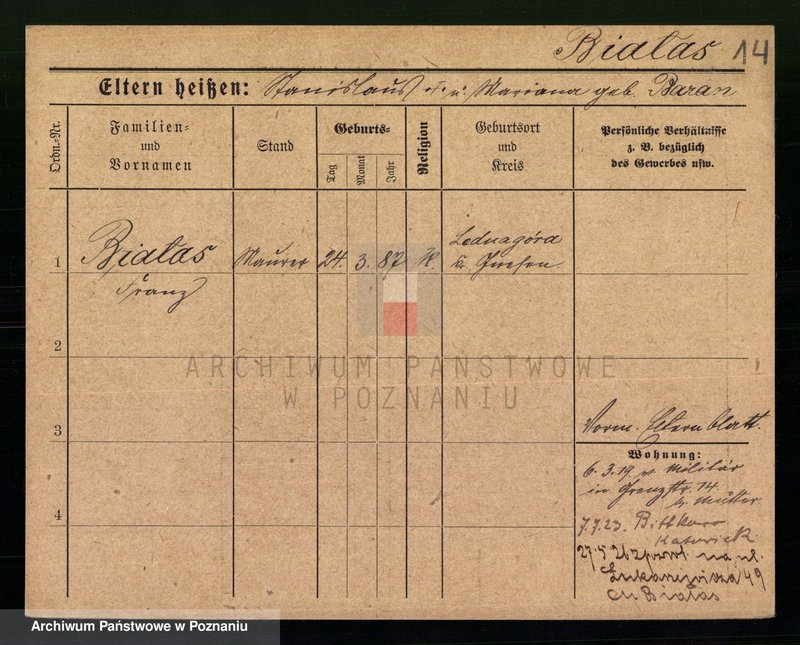 Białas 14
Eltern heißen: Stanislaus u. Mariana geb. Baran
Ordn.-Nr.
Familien-
und
Vornamen
Stand
Geburts-
Tag
Monat
Jahr
Religion
Geburtsort
und
Kreis
Persönliche Verhältnisse
z. B. bezüglich
des Gewerbes usw.
1 Białas Maurer 24. 3. 87 K. Lednagóra
Franz
2
ARCHIWUM PAŃSTWOWE
W POZNANIU
3
Vorm. Elternblatt.
Wohnung:
6.3.19 v. Militär
in Grenzstr. 14.
b. Mutter
4
7.7.23. Bithkowo
27.5.26 na ul.
49
Białas
Archiwum Państwowe w Poznaniu